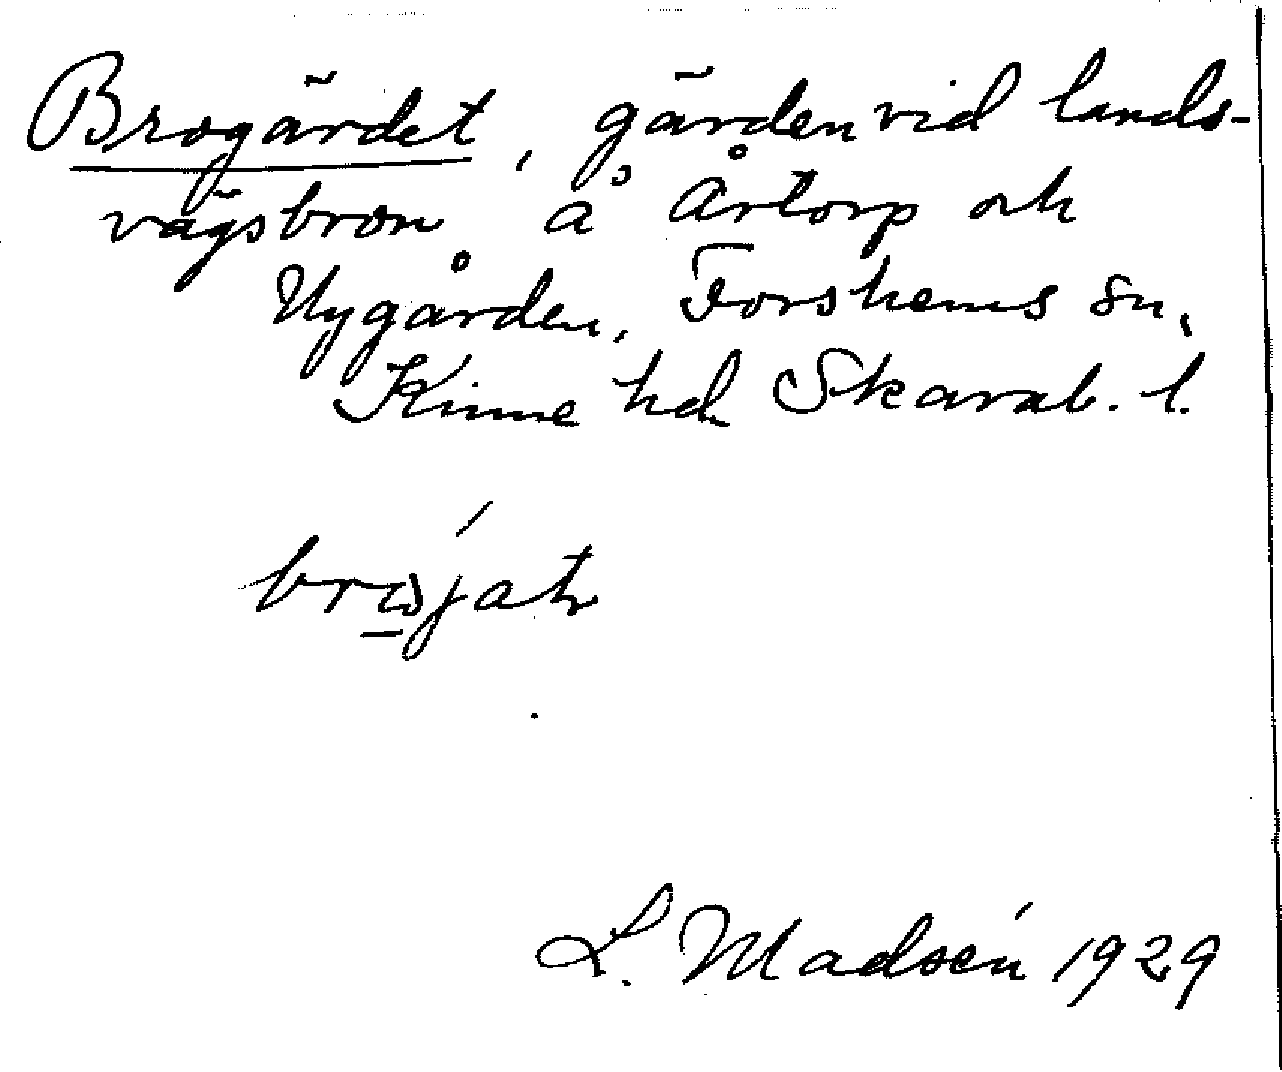 Brogärdet, gärden vid lands-
vägsbron å Årtorp och
Nygården, Forshems sn,
Kinne hd Skarab. l.
L. Madsén 1929